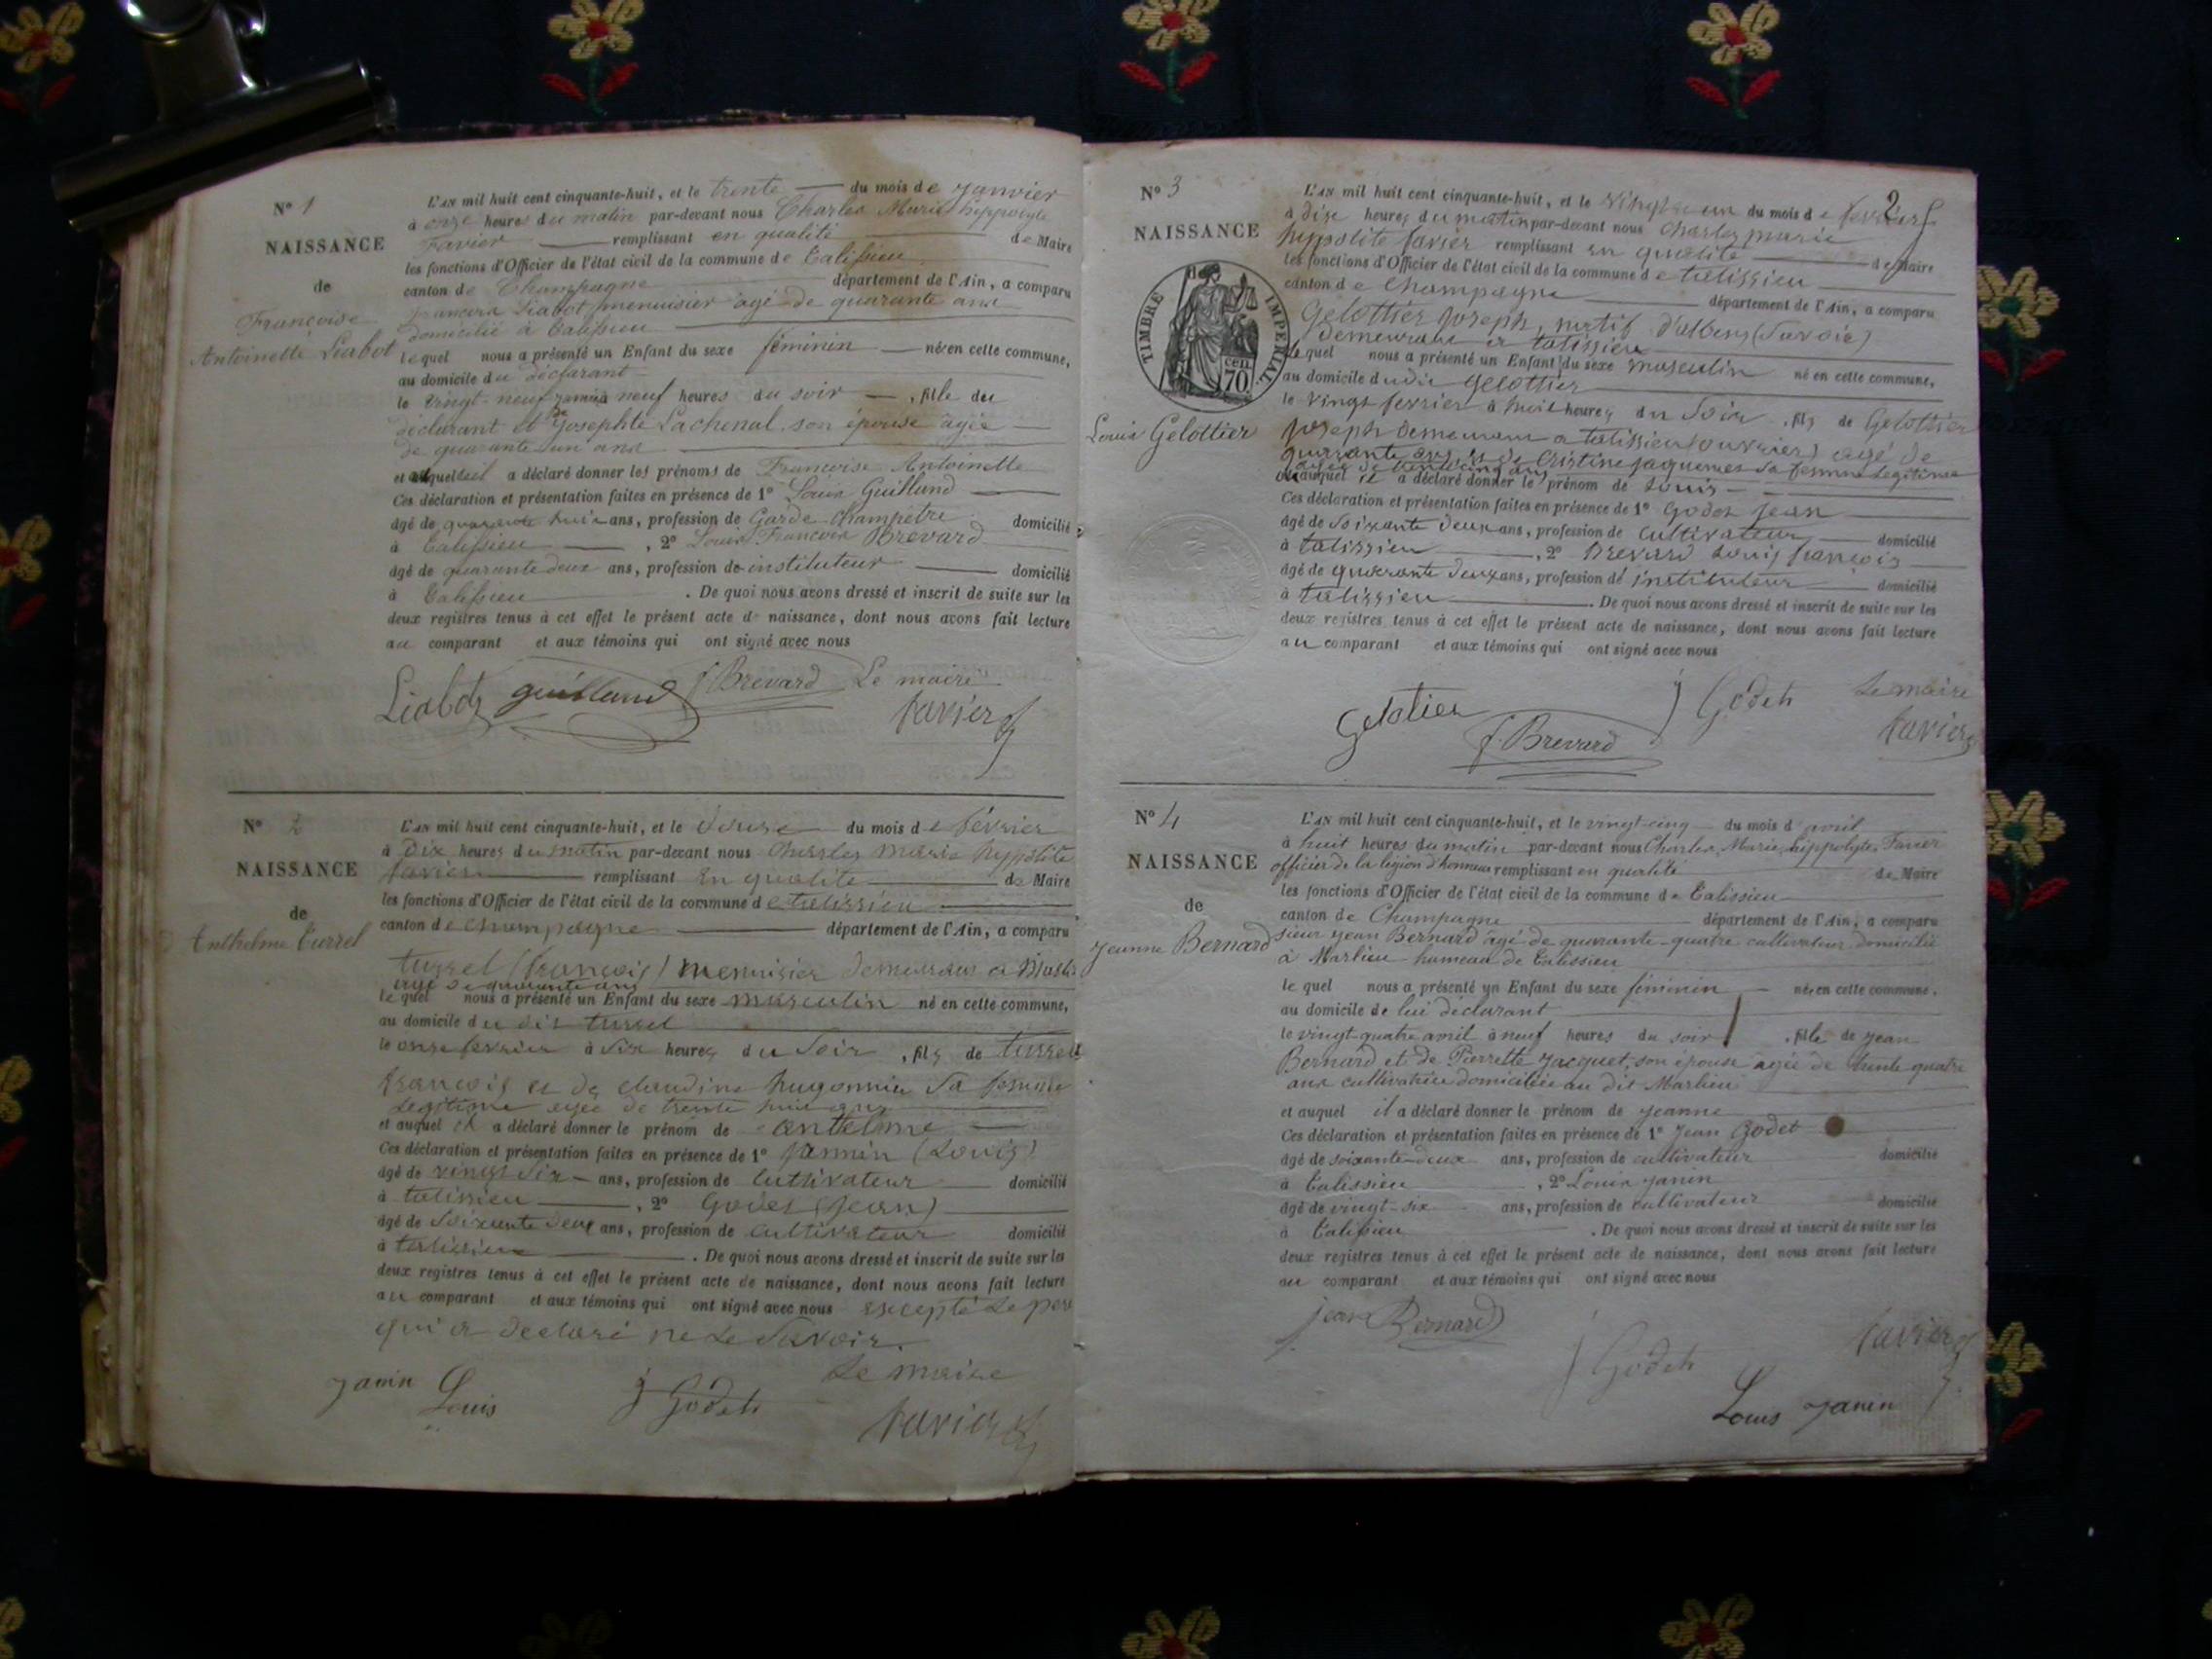 N° 1
NAISSANCE
de
Françoise
Antoinette Liabot
L'AN mil huit cent cinquante-huit, et le trente du mois de janvier
à onze heures du matin par-devant nous Charles Marie hippolyte
Favier remplissant en qualité de Maire
les fonctions d'Officier de l'état civil de la commune de Talissieu
canton de Champagne département de l'Ain, a comparu
françois Liabot menuisier âgé de quarante ans
domicilié à Talissieu
lequel nous a présenté un Enfant du sexe féminin née en cette commune,
au domicile du déclarant
le vingt-neuf janvier à neuf heures du soir, fille du
déclarant et de Josephte Lachenal son épouse âgée
de quarante un ans
et auquel il a déclaré donner les prénoms de Françoise Antoinette
Ces déclaration et présentation faites en présence de 1° Louis Guilland
âgé de quarante huit ans, profession de Garde-champêtre domicilié
à Talissieu, 2° Louis François Brevard
âgé de quarante deux ans, profession de instituteur domicilié
à Talissieu. De quoi nous avons dressé et inscrit de suite sur les
deux registres tenus à cet effet le présent acte de naissance, dont nous avons fait lecture
au comparant et aux témoins qui ont signé avec nous
Liabot guilland f. Brevard Le maire
favier
N° 2
NAISSANCE
de
Anthelme Turrel
L'AN mil huit cent cinquante-huit, et le douze du mois de février
à dix heures du matin par-devant nous Charles marie hyppolite
favier remplissant en qualité de Maire
les fonctions d'Officier de l'état civil de la commune de talissieu
canton de champagne département de l'Ain, a comparu
turrel (françois) menuisier demeurant a
agé de quarante ans
lequel nous a présenté un Enfant du sexe masculin né en cette commune,
au domicile du dit turrel
le onze fevrier à six heures du soir, fils de turrel
françois et de claudine hugonnier sa femme
legitime agée de trente huit ans
et auquel il a déclaré donner le prénom de antelme
Ces déclaration et présentation faites en présence de 1° jannin (Louis)
âgé de vingt six ans, profession de cultivateur domicilié
à talissieu, 2° Godet (jean)
âgé de soixante deux ans, profession de cultivateur domicilié
à talissieu. De quoi nous avons dressé et inscrit de suite sur les
deux registres tenus à cet effet le présent acte de naissance, dont nous avons fait lecture
au comparant et aux témoins qui ont signé avec nous excepté le pere
qui a declaré ne le savoir.
Janin Louis j Godet Le maire
favier
2
N° 3
NAISSANCE
TIMBRE IMPERIAL
70 cen
Louis Gelottier
L'AN mil huit cent cinquante-huit, et le vingt et un du mois de fevrier
à dix heures du matin par-devant nous Charles marie
hyppolite favier remplissant en qualité de Maire
les fonctions d'Officier de l'état civil de la commune de talissieu
canton de champagne département de l'Ain, a comparu
Gelottier joseph, natif d'albens (Savoie)
demeurant a talissieu
lequel nous a présenté un Enfant du sexe masculin né en cette commune,
au domicile dudit Gelottier
le vingt fevrier à huit heures du soir, fils de Gelottier
joseph demeurant a talissieu (ouvrier) agé de
quarante ans et de Cristine jaquemes sa femme legitime
agée de trente cinq ans
et auquel il a déclaré donner le prénom de Louis
Ces déclaration et présentation faites en présence de 1° Godet jean
âgé de soixante deux ans, profession de cultivateur domicilié
à talissieu, 2° Brevard Louis françois
âgé de quarante deux ans, profession de instituteur domicilié
à talissieu. De quoi nous avons dressé et inscrit de suite sur les
deux registres tenus à cet effet le présent acte de naissance, dont nous avons fait lecture
au comparant et aux témoins qui ont signé avec nous
Gelotier f. Brevard j Godet Le maire
favier
N° 4
NAISSANCE
de
Jeanne Bernard
L'AN mil huit cent cinquante-huit, et le vingt-cinq du mois d'avril
à huit heures du matin par-devant nous Charles Marie hippolyte Favier
officier de la légion d'honneur remplissant en qualité de Maire
les fonctions d'Officier de l'état civil de la commune de Talissieu
canton de Champagne département de l'Ain, a comparu
sieur Jean Bernard âgé de quarante-quatre cultivateur domicilié
à Marlieu hameau de Talissieu
lequel nous a présenté un Enfant du sexe féminin née en cette commune,
au domicile de lui déclarant
le vingt-quatre avril à neuf heures du soir, fille de Jean
Bernard et de Pierrette Jacquet, son épouse âgée de trente-quatre
ans cultivatrice domiciliée au dit Marlieu
et auquel il a déclaré donner le prénom de Jeanne
Ces déclaration et présentation faites en présence de 1° Jean Godet
âgé de soixante-deux ans, profession de cultivateur domicilié
à Talissieu, 2° Louis Janin
âgé de vingt-six ans, profession de cultivateur domicilié
à Talissieu. De quoi nous avons dressé et inscrit de suite sur les
deux registres tenus à cet effet le présent acte de naissance, dont nous avons fait lecture
au comparant et aux témoins qui ont signé avec nous
jean Bernard
j Godet favier
Louis Janin